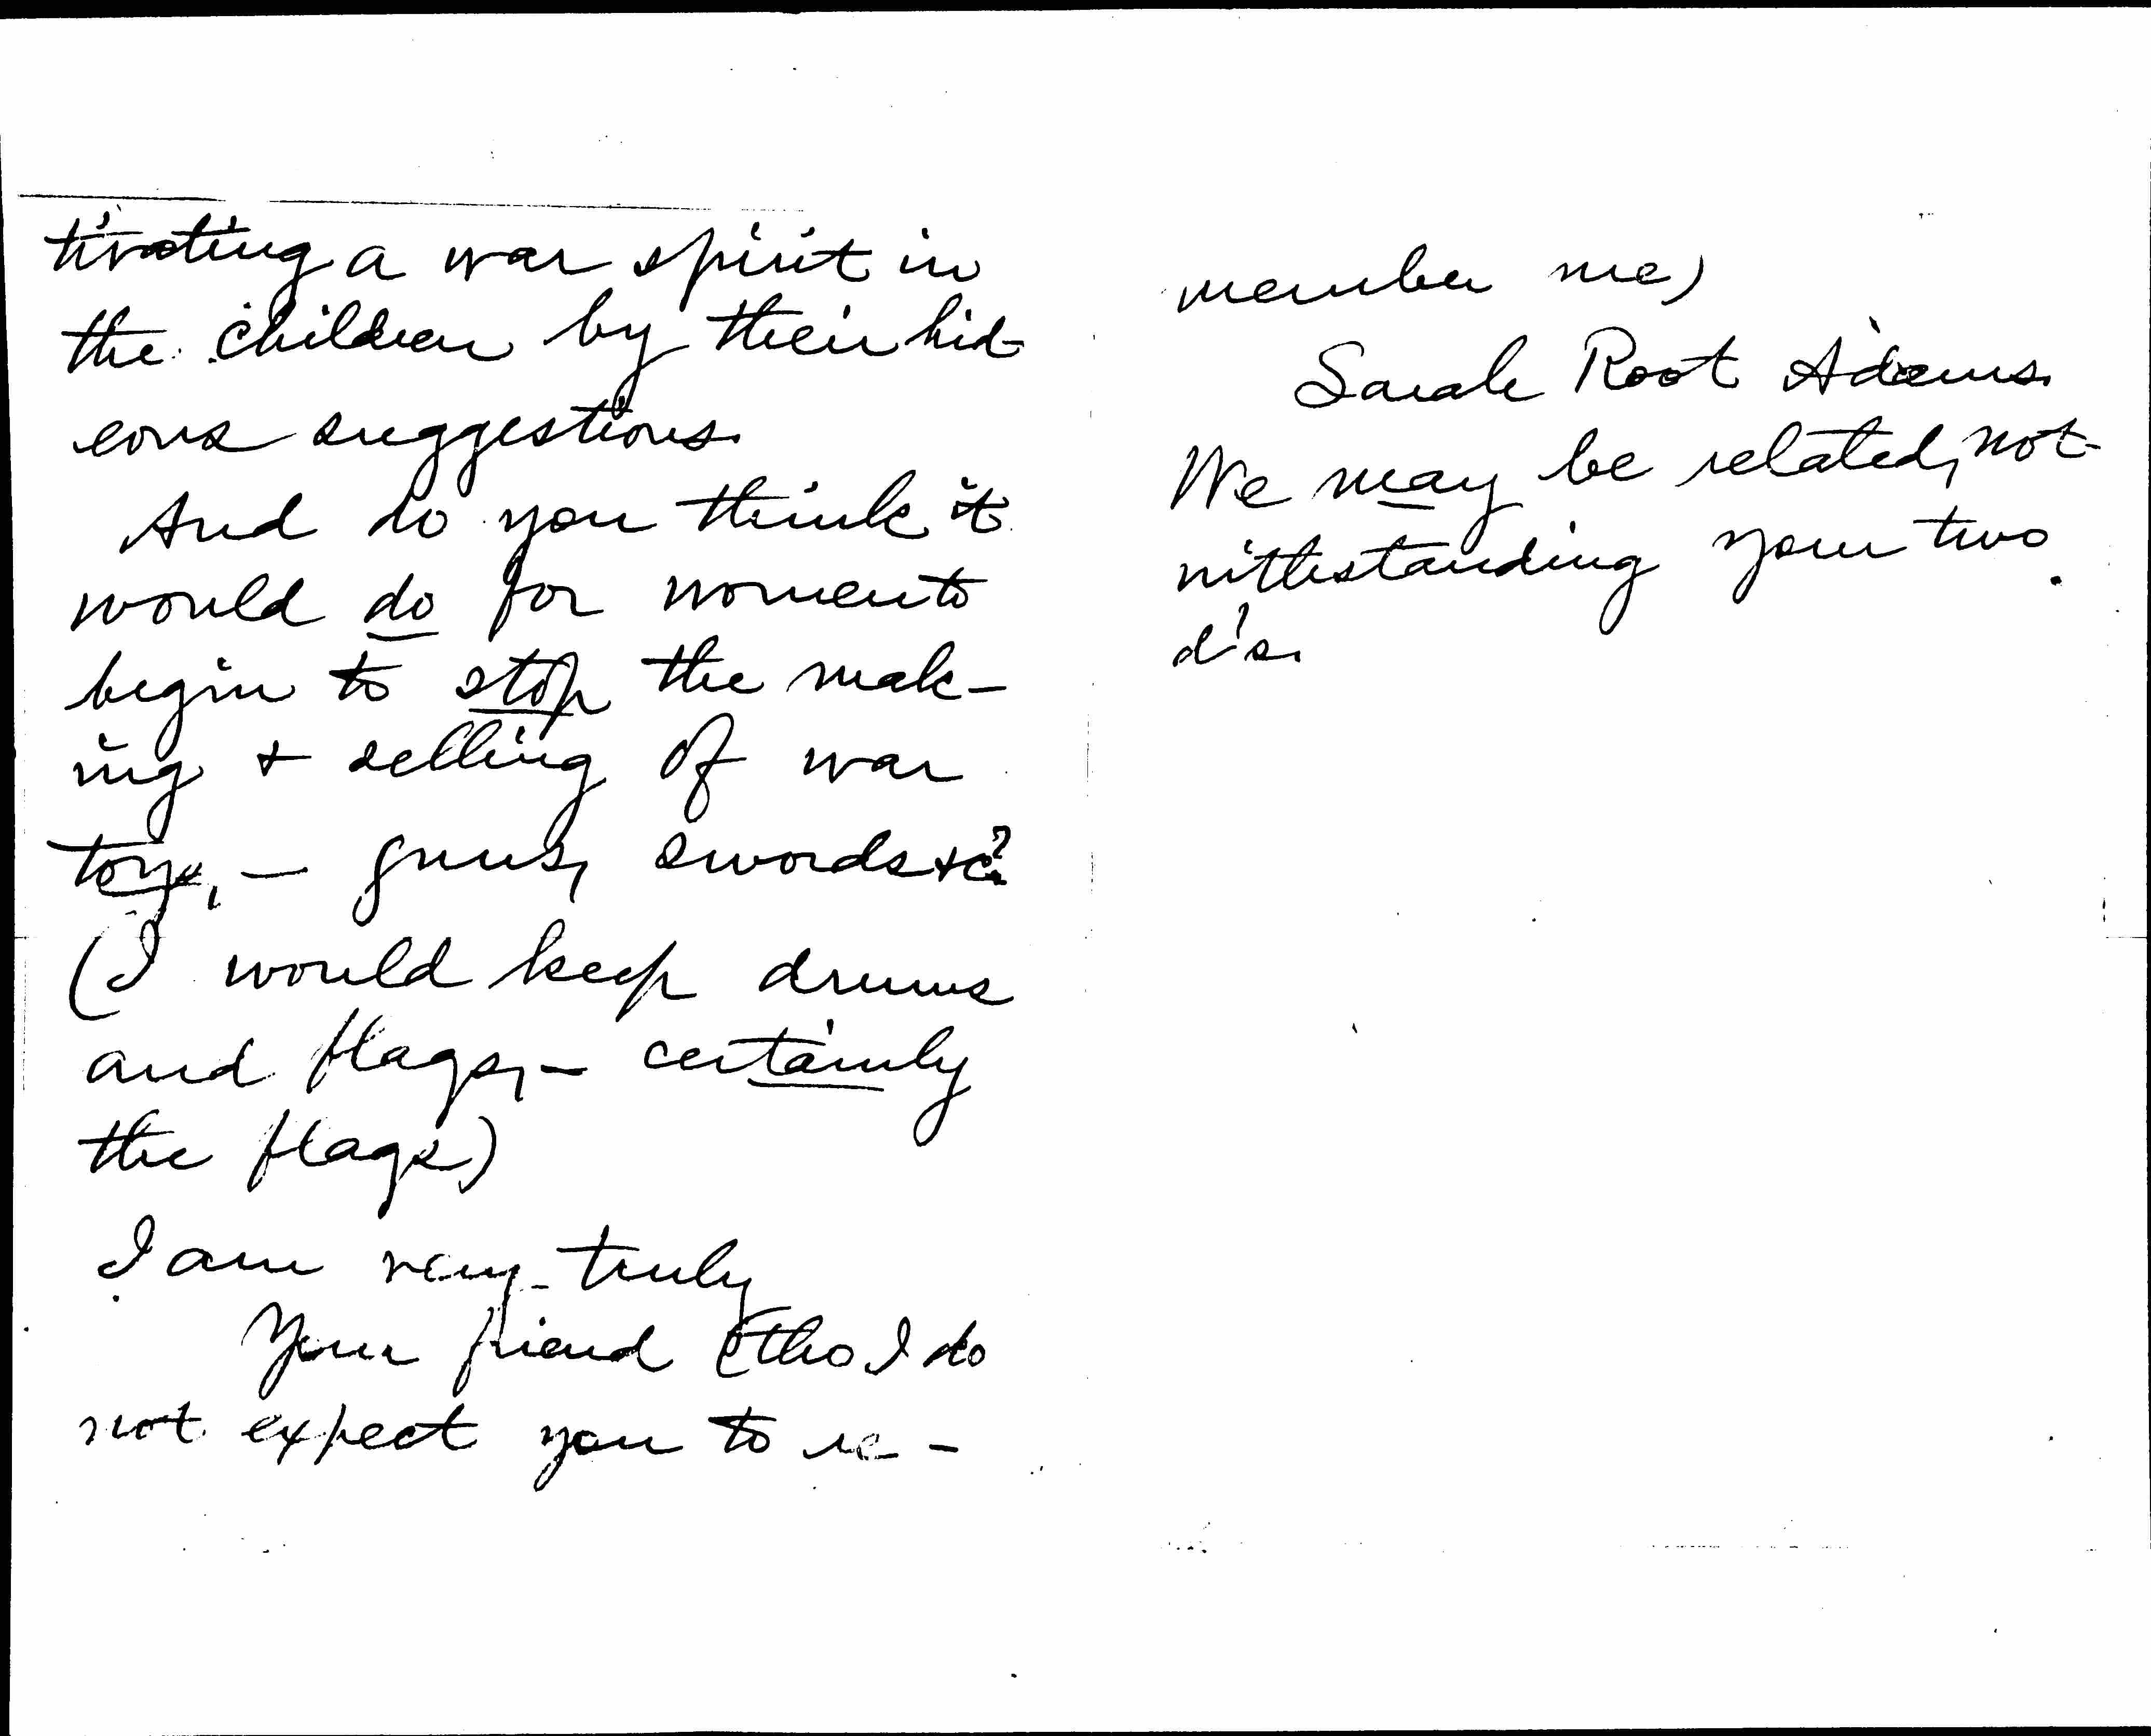 tivating a war spirit in
the children by their hid-
eous suggestions.
And do you think it
would do for women to
begin to stop the mak-
ing + selling of war
toys, — guns, swords +c?
(I would keep drums
and flags, — certainly
the flags)
I am very truly
Your friend (tho I do
not expect you to re-
member me)
Sarah Root Adams.
We may be related, not-
withstanding your two
d's.